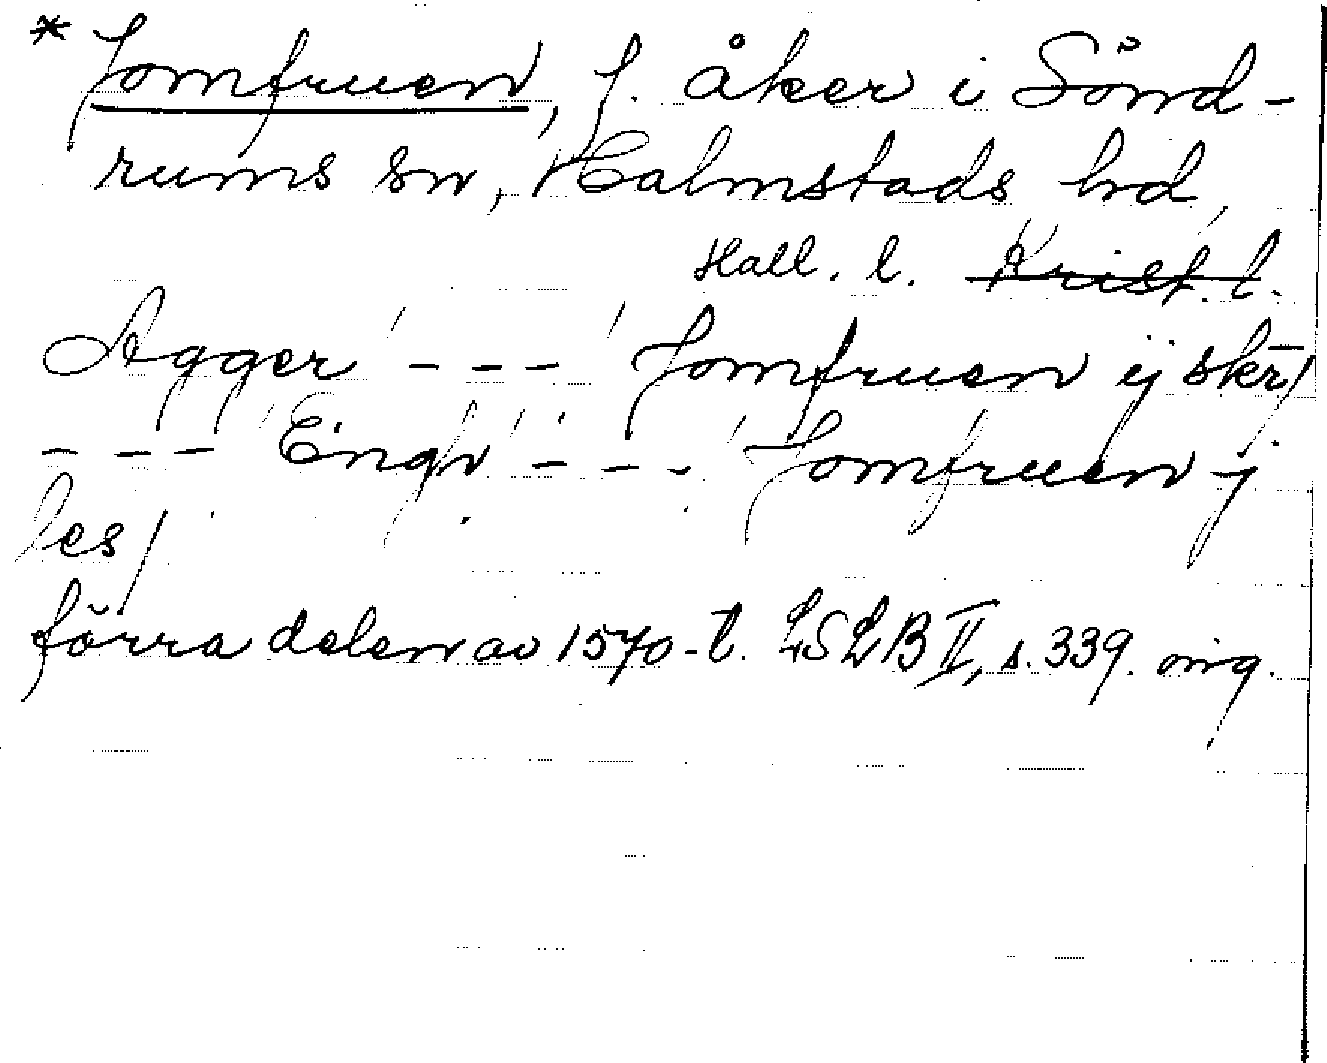 * Jomfruen, f. åker i Sönd-
rums sn, Halmstads hd,
Hall. l. Krist. l.
Agger - - - Jomfruen ij skr/
- - - Engh - - - Jomfruen j
les/
förra delen av 1570-t. LSLB II, s. 339. orig.